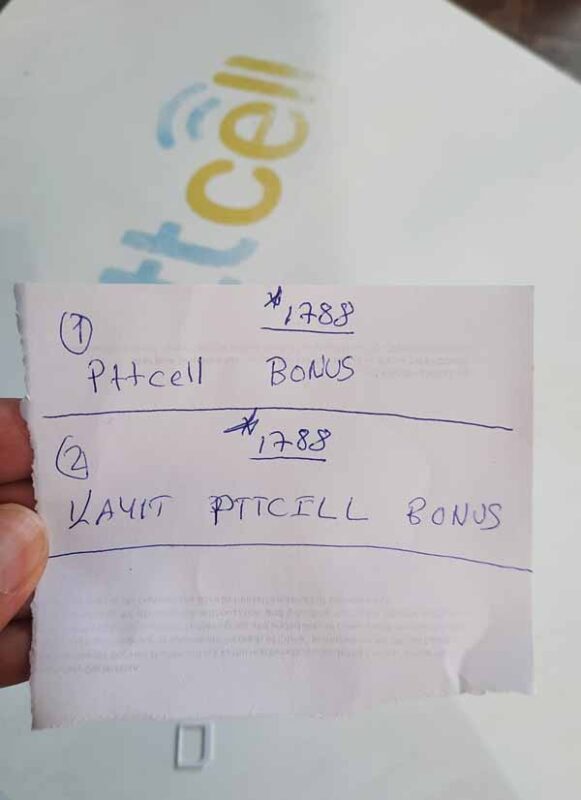 ttcell
①
*1788
Pttcell BONUS
②
*1788
KAYIT PTTCELL BONUS